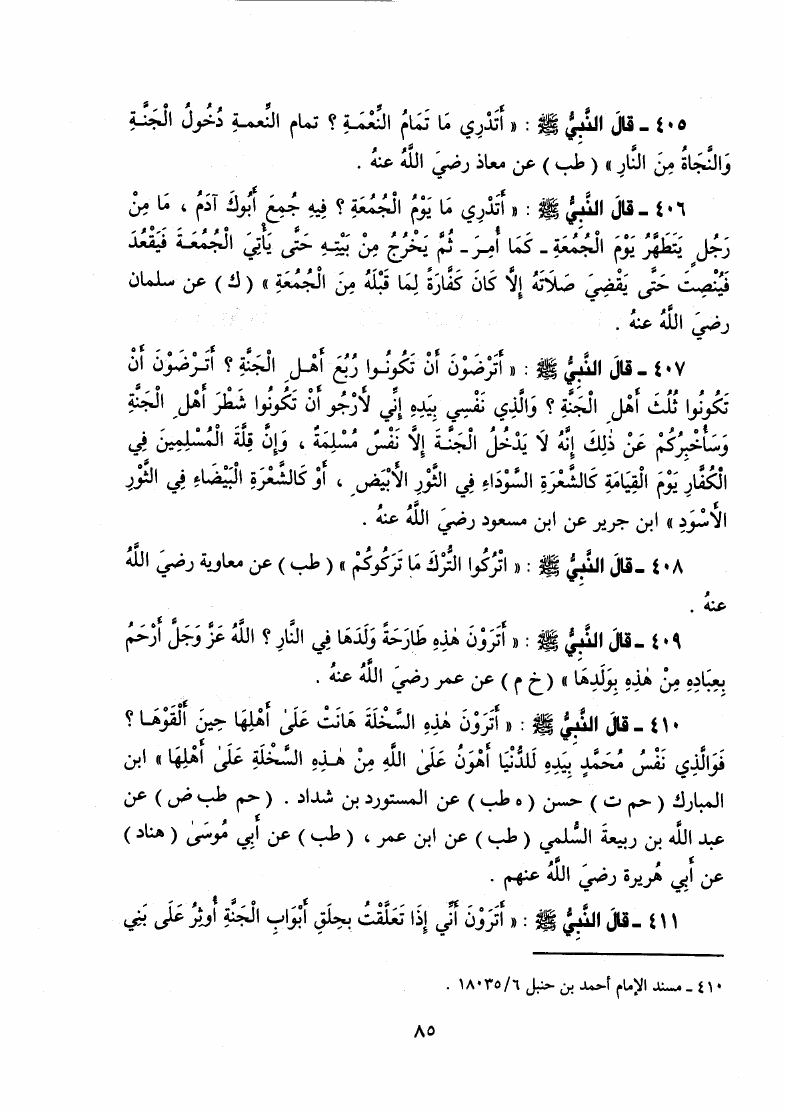 ٤٠٥ ـ قالَ النَّبِيُّ ﷺ : « أَتَدْرِي مَا تَمَامُ النِّعْمَةِ ؟ تمام النِّعمـةِ دُخُولُ الْجَنَّـةِ
وَالنَّجَاةُ مِنَ النَّارِ » ( طب ) عن معاذ رضيَ اللَّهُ عنهُ .
٤٠٦ ـ قالَ النَّبِيُّ ﷺ : « أَتَدْرِي مَا يَوْمُ الْجُمُعَةِ ؟ فِيهِ جُمِعَ أَبُوكَ آدَمُ ، مَا مِنْ
رَجُلٍ يَتَطَهَّرُ يَوْمَ الْجُمُعَةِ ـ كَمَا أُمِـرَ ـ ثُمَّ يَخْرُجُ مِنْ بَيْتِـهِ حَتَّى يَأْتِيَ الْجُمُعَـةَ فَيَقْعُدَ
فَيُنْصِتَ حَتَّى يَقْضِيَ صَلَاتَهُ إِلَّا كَانَ كَفَّارَةً لِمَا قَبْلَهُ مِنَ الْجُمُعَةِ » ( ك ) عن سلمان
رضيَ اللَّهُ عنهُ .
٤٠٧ ـ قالَ النَّبِيُّ ﷺ : « أَتَرْضَوْنَ أَنْ تَكُونُـوا رُبُعَ أَهْـلِ الْجَنَّةِ ؟ أَتَـرْضَوْنَ أَنْ
تَكُونُوا ثُلُثَ أَهْلِ الْجَنَّةِ ؟ وَالَّذِي نَفْسِي بِيَدِهِ إِنِّي لَأَرْجُو أَنْ تَكُونُوا شَطْرَ أَهْلِ الْجَنَّةِ
وَسَأُخْبِرُكُمْ عَنْ ذٰلِكَ إِنَّهُ لَا يَدْخُلُ الْجَنَّـةَ إِلَّا نَفْسٌ مُسْلِمَةٌ ، وَإِنَّ قِلَّةَ الْمُسْلِمِينَ فِي
الْكُفَّارِ يَوْمَ الْقِيَامَةِ كَالشَّعْرَةِ السَّوْدَاءِ فِي الثَّوْرِ الْأَبْيَضِ ، أَوْ كَالشَّعْرَةِ الْبَيْضَاءِ فِي الثَّوْرِ
الْأَسْوَدِ » ابن جرير عن ابن مسعود رضيَ اللَّهُ عنهُ .
٤٠٨ ـ قالَ النَّبِيُّ ﷺ : « اتْرُكُوا التُّرْكَ مَا تَرَكُوكُمْ » ( طب ) عن معاوية رضيَ اللَّهُ
عنهُ .
٤٠٩ ـ قالَ النَّبِيُّ ﷺ : « أَتَرَوْنَ هٰذِهِ طَارِحَةً وَلَدَهَا فِي النَّارِ ؟ اللَّهُ عَزَّ وَجَلَّ أَرْحَمُ
بِعِبَادِهِ مِنْ هٰذِهِ بِوَلَدِهَا » ( خ م ) عن عمر رضيَ اللَّهُ عنهُ .
٤١٠ ـ قالَ النَّبِيُّ ﷺ : « أَتَرَوْنَ هٰذِهِ السَّخْلَةَ هَانَتْ عَلَىٰ أَهْلِهَا حِينَ أَلْقَوْهَـا ؟
فَوَالَّذِي نَفْسُ مُحَمَّدٍ بِيَدِهِ لَلدُّنْيَا أَهْوَنُ عَلَى اللَّهِ مِنْ هٰـذِهِ السَّخْلَةِ عَلَىٰ أَهْلِهَا » ابن
المبارك ( حم ت ) حسن ( ه طب ) عن المستورد بن شداد . ( حم طب ض ) عن
عبد اللَّه بن ربيعة السُّلمي ( طب ) عن ابن عمر ، ( طب ) عن أَبِي مُوسَىٰ ( هناد )
عن أَبِي هُريرة رضيَ اللَّهُ عنهم .
٤١١ ـ قالَ النَّبِيُّ ﷺ : « أَتَرَوْنَ أَنِّي إِذَا تَعَلَّقْتُ بِحِلَقِ أَبْوَابِ الْجَنَّةِ أُوثِرُ عَلَى بَنِي
٤١٠ ـ مسند الإمام أحمد بن حنبل ٦/١٨٠٣٥ .
٨٥